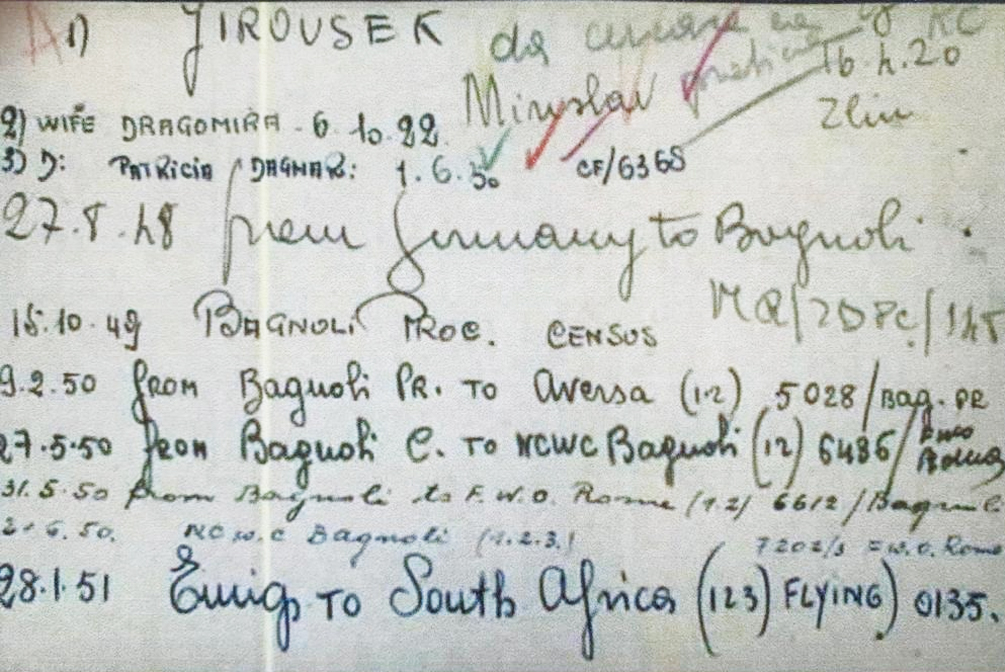 A 1) JIROUSEK
Miroslav
16.4.20
Zlin
2) WIFE DRAGOMIRA - 6.10.22.
3) D: PATRICIA DAGMAR: 1.6.50 CF/6368
27.8.48 from Germany to Bagnoli
15.10.49 BAGNOLI PROC. CENSUS
9.2.50 from Bagnoli PR. TO Aversa (1-2) 5028/Bag. PR
27.5.50 from Bagnoli C. TO NCWC Bagnoli (12) 6486/
31.5.50 from Bagnoli to F.W.O. Rome (1.2) 6612/Bagnoli
.6.50. NCWC Bagnoli (1.2.3.) 7202/3 F.W.O. Rome
28.1.51 Emig TO South Africa (123) FLYING) 0135.